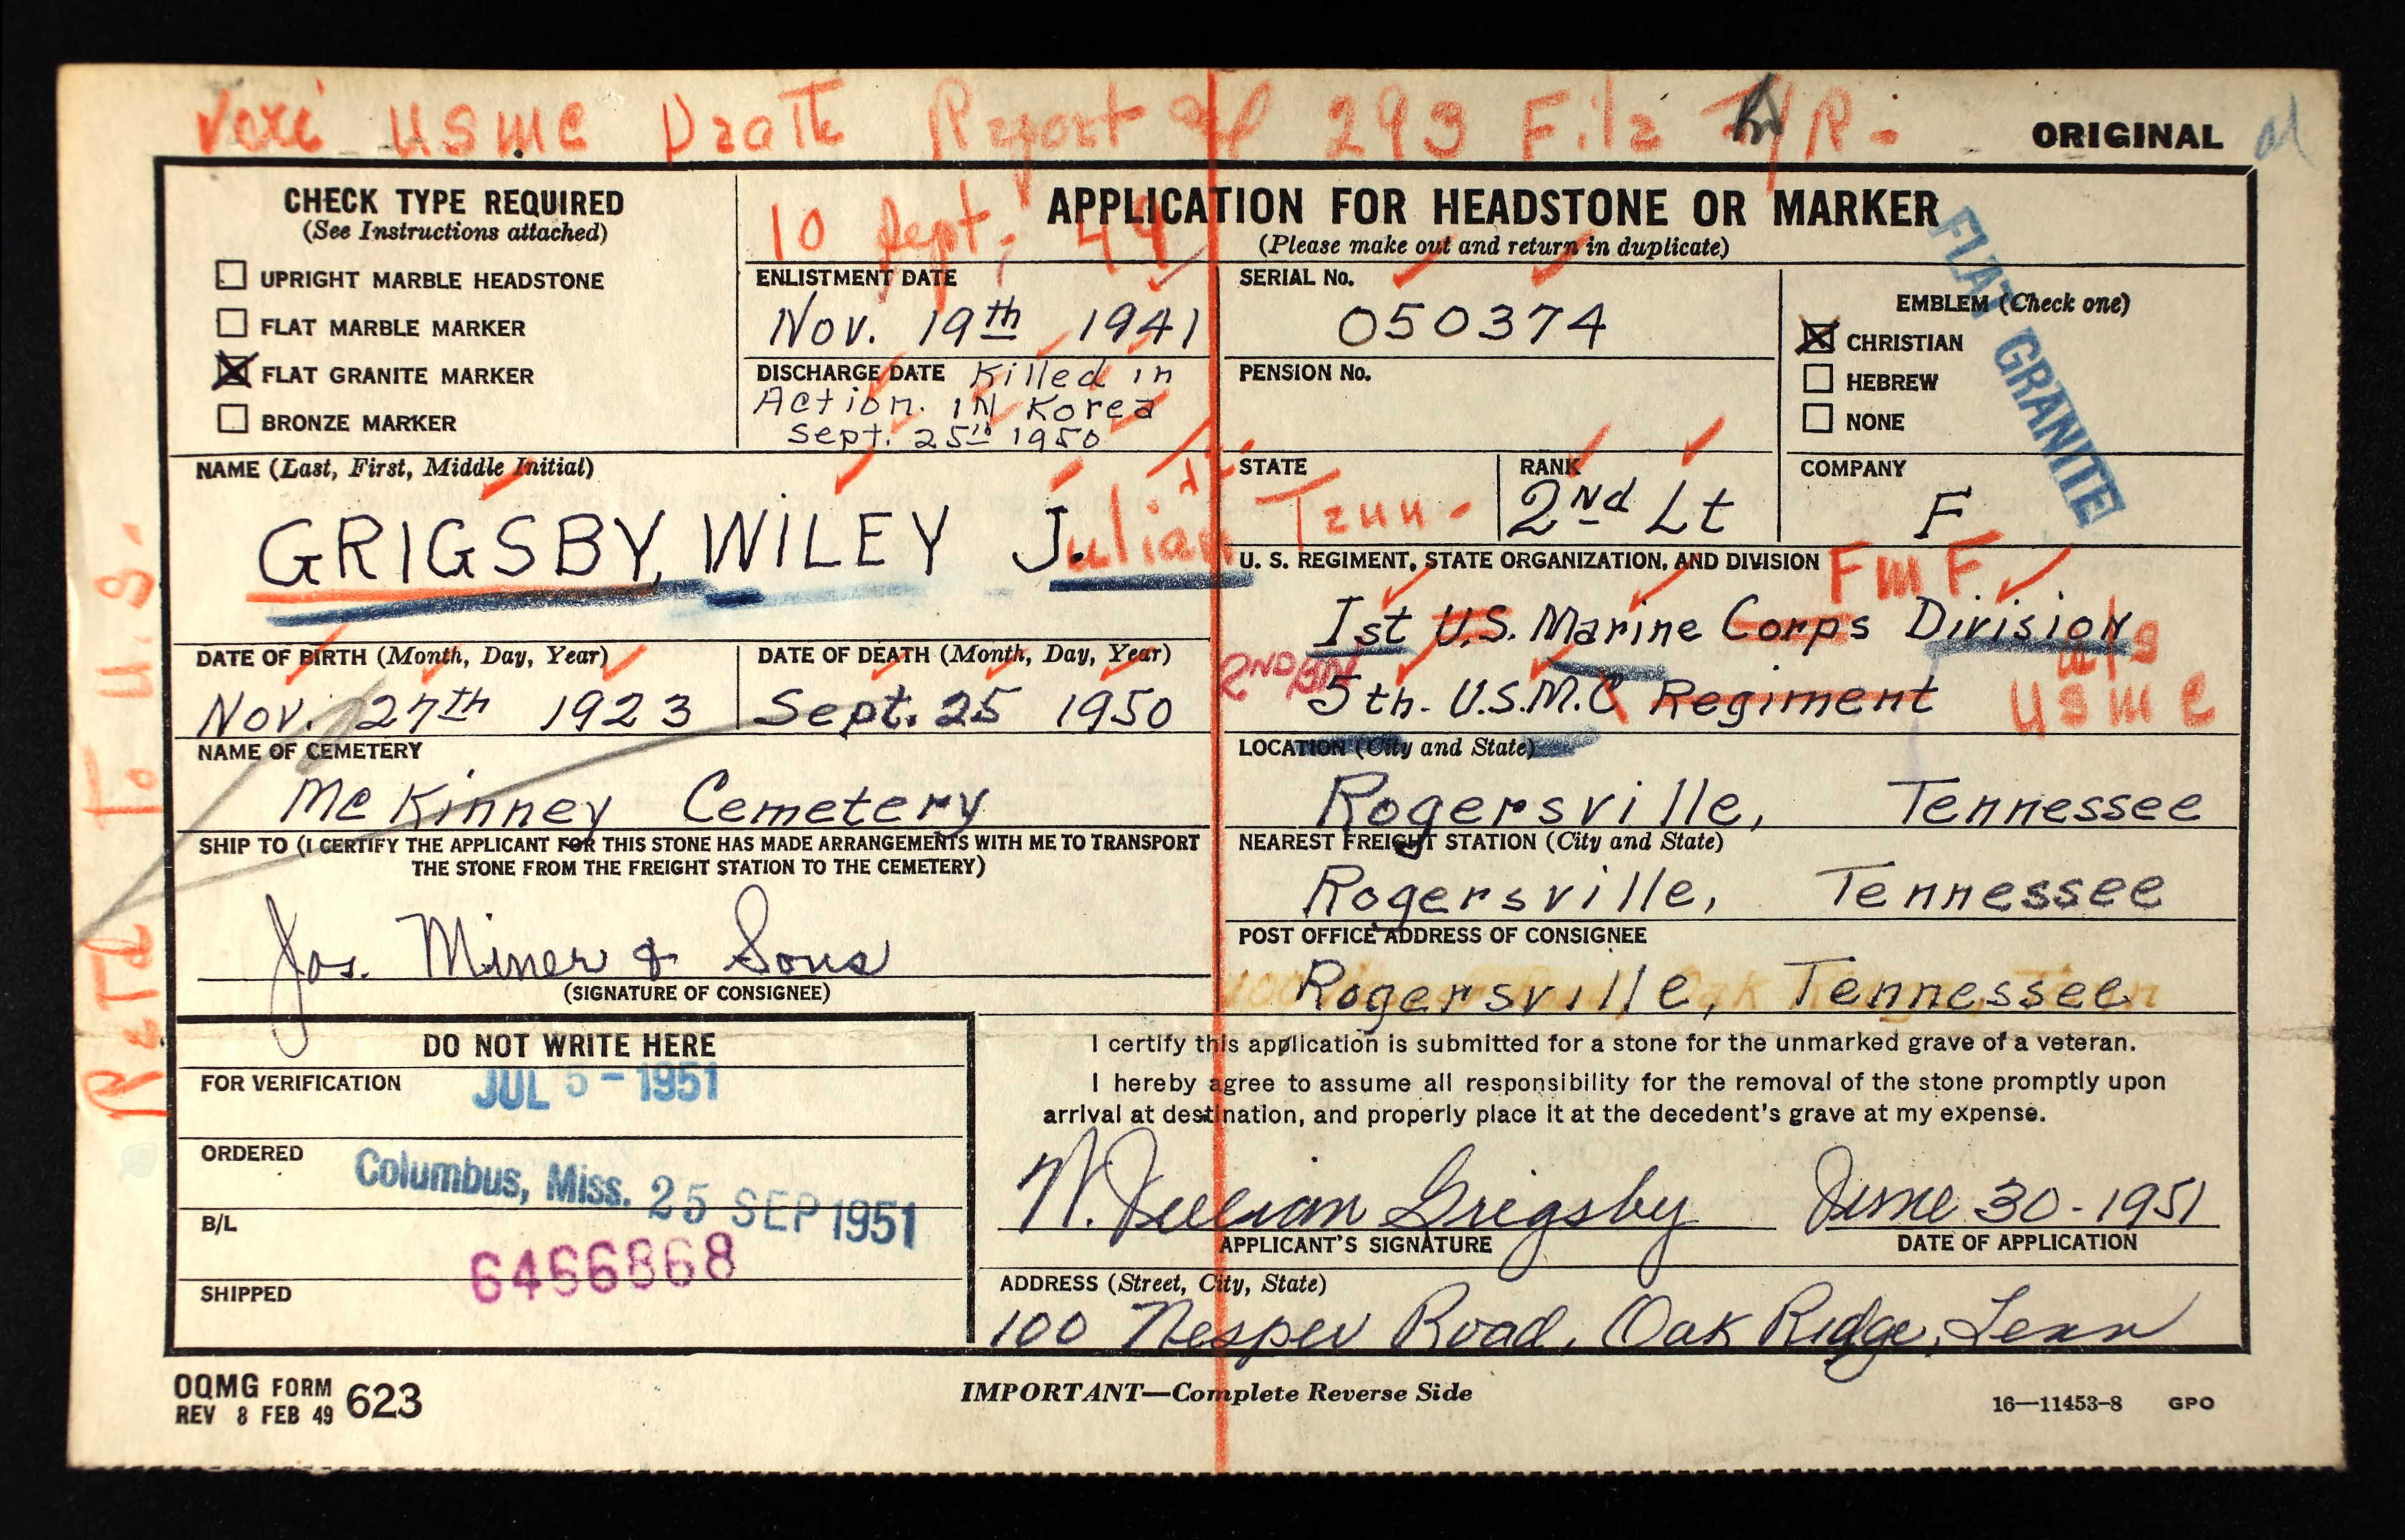 Veri USMC Death Report of 293 File
ORIGINAL
CHECK TYPE REQUIRED
(See Instructions attached)
UPRIGHT MARBLE HEADSTONE
FLAT MARBLE MARKER
FLAT GRANITE MARKER
BRONZE MARKER
10 Sept, 44
APPLICATION FOR HEADSTONE OR MARKER
(Please make out and return in duplicate)
FLAT GRANITE
ENLISTMENT DATE
Nov. 19th 1941
SERIAL No.
050374
EMBLEM (Check one)
CHRISTIAN
HEBREW
NONE
DISCHARGE DATE Killed in
Action. IN Korea
Sept. 25th 1950
PENSION No.
NAME (Last, First, Middle Initial)
GRIGSBY, WILEY J.ulian
STATE
Tenn-
RANK
2Nd Lt
COMPANY
F
U. S. REGIMENT, STATE ORGANIZATION, AND DIVISION FMF
Ist U.S. Marine Corps Division
2ND BN 5th. U.S.M.C Regiment
USMC
DATE OF BIRTH (Month, Day, Year)
Nov. 27th 1923
DATE OF DEATH (Month, Day, Year)
Sept. 25 1950
NAME OF CEMETERY
McKinney Cemetery
LOCATION (City and State)
Rogersville, Tennessee
SHIP TO (I CERTIFY THE APPLICANT FOR THIS STONE HAS MADE ARRANGEMENTS WITH ME TO TRANSPORT
THE STONE FROM THE FREIGHT STATION TO THE CEMETERY)
Jos. Miner & Sons
(SIGNATURE OF CONSIGNEE)
NEAREST FREIGHT STATION (City and State)
Rogersville, Tennessee
POST OFFICE ADDRESS OF CONSIGNEE
Rogersville, Tennessee
RETd To U.S.
DO NOT WRITE HERE
FOR VERIFICATION
JUL 5 - 1951
ORDERED
Columbus, Miss. 25 SEP 1951
B/L
6466868
SHIPPED
I certify this application is submitted for a stone for the unmarked grave of a veteran.
I hereby agree to assume all responsibility for the removal of the stone promptly upon
arrival at destination, and properly place it at the decedent's grave at my expense.
W. Julian Grigsby June 30-1951
APPLICANT'S SIGNATURE
DATE OF APPLICATION
ADDRESS (Street, City, State)
100 Nesper Road, Oak Ridge, Tenn
OQMG FORM 623
REV 8 FEB 49
IMPORTANT—Complete Reverse Side
16—11453-8 GPO